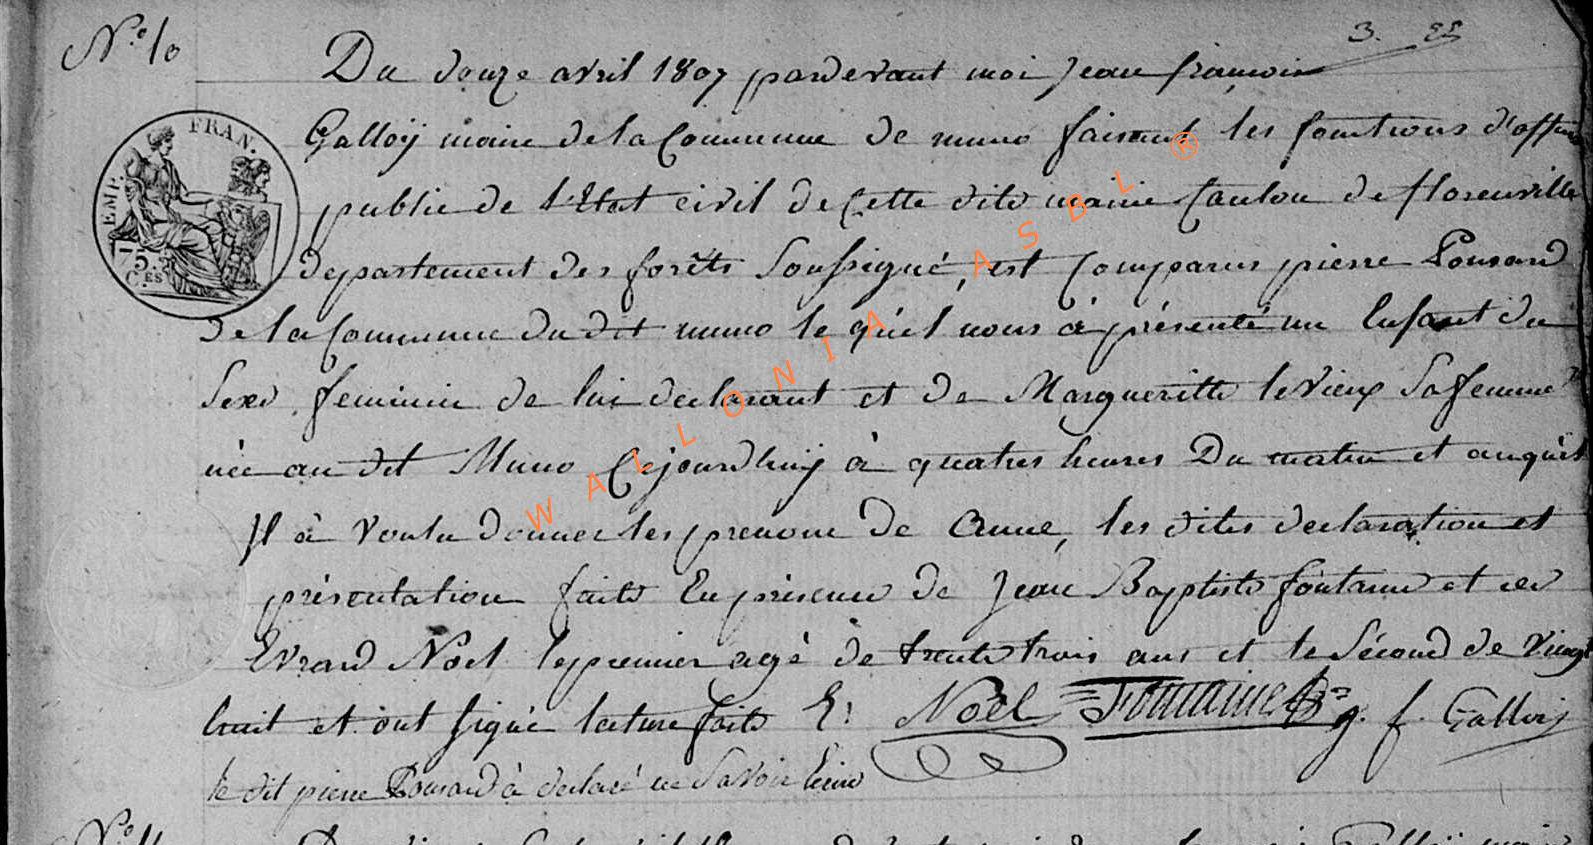 N.º 10
3.
Du douze avril 1807 pardevant moi Jean françois
Galloÿ maire de la Commune de muno faisant les fonctions d'officier
FRAN.
EMP.
75.
C.ES
public de l'Etat civil de Cette dite mairie Canton de florenville
departement des forêts Soussigné, est Comparus pierre Ponsard
de la Commune du dit muno le quel nous à présenté un Enfant du
Sexe feminin de lui declarant et de Margueritte le Vieux Sa femme
née au dit Muno Cejourdhuy à quatres heures Du matin et auquel
Il à voulu donner les prenom de Anne, les dites declaration et
présentation faite En présence de Jean Baptiste fontaine et de
Evrard Noel le premier agé de trente trois ans et le Sécond de vingt
huit et ont signé lecture faite E: Noël Fontaine J. f. Galloÿ
le dit pierre Ponsard à declaré ne Savoir Ecrire
N.º 11
WALLONIA ASBL ®